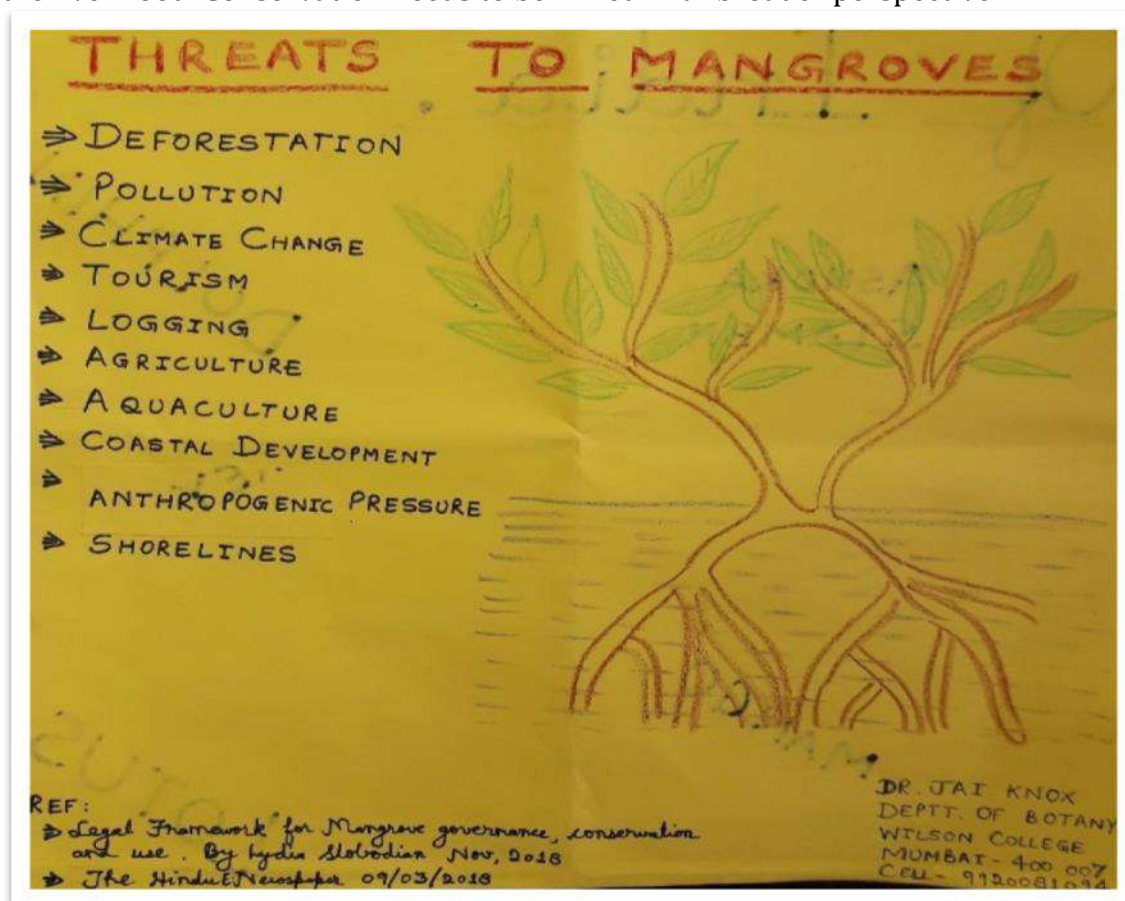 THREATS TO MANGROVES
⇛ DEFORESTATION
⇛ POLLUTION
⇛ CLIMATE CHANGE
⇛ TOURISM
⇛ LOGGING
⇛ AGRICULTURE
⇛ AQUACULTURE
⇛ COASTAL DEVELOPMENT
⇛ ANTHROPOGENIC PRESSURE
⇛ SHORELINES
REF:
⇛ Legal Framework for Mangrove governance, conservation
and use. By Lydia Slobodian Nov, 2018
⇛ The Hindu E Newspaper 09/03/2018
DR. JAI KNOX
DEPTT. OF BOTANY
WILSON COLLEGE
MUMBAI - 400 007
CELL - 9920081094